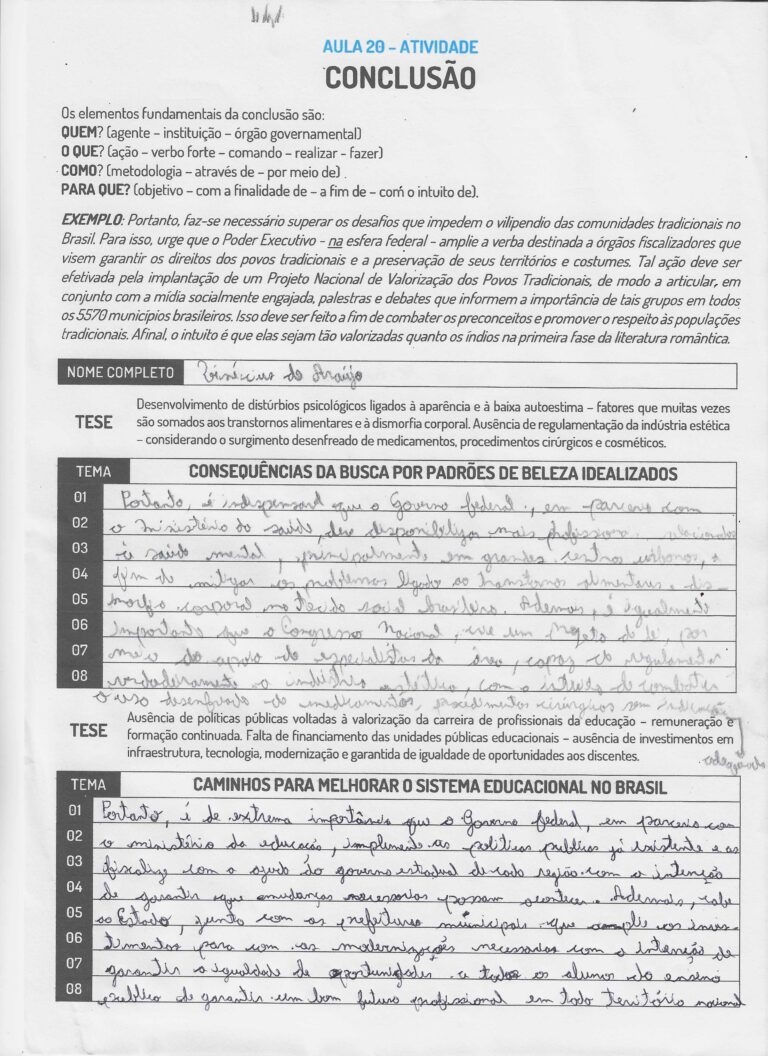 AULA 20 – ATIVIDADE
CONCLUSÃO
Os elementos fundamentais da conclusão são:
QUEM? (agente – instituição – órgão governamental)
O QUE? (ação – verbo forte – comando – realizar - fazer)
COMO? (metodologia – através de – por meio de)
PARA QUE? (objetivo – com a finalidade de – a fim de – com o intuito de).
EXEMPLO: Portanto, faz-se necessário superar os desafios que impedem o vilipendio das comunidades tradicionais no
Brasil. Para isso, urge que o Poder Executivo - na esfera federal - amplie a verba destinada a órgãos fiscalizadores que
visem garantir os direitos dos povos tradicionais e a preservação de seus territórios e costumes. Tal ação deve ser
efetivada pela implantação de um Projeto Nacional de Valorização dos Povos Tradicionais, de modo a articular, em
conjunto com a mídia socialmente engajada, palestras e debates que informem a importância de tais grupos em todos
os 5570 municípios brasileiros. Isso deve ser feito a fim de combater os preconceitos e promover o respeito às populações
tradicionais. Afinal, o intuito é que elas sejam tão valorizadas quanto os índios na primeira fase da literatura romântica.
NOME COMPLETO Vinícius de Araújo
TESE
Desenvolvimento de distúrbios psicológicos ligados à aparência e à baixa autoestima – fatores que muitas vezes
são somados aos transtornos alimentares e à dismorfia corporal. Ausência de regulamentação da indústria estética
– considerando o surgimento desenfreado de medicamentos, procedimentos cirúrgicos e cosméticos.
TEMA CONSEQUÊNCIAS DA BUSCA POR PADRÕES DE BELEZA IDEALIZADOS
01 Portanto, é que o Governo federal, em com
02 o ministério da saúde, mais
03 a saúde mental, principalmente em grandes urbanos, a
04 fim de mitigar os problemas ligado ao
05 corporal no tecido Ademais, é igualmente
06 importante que o Congresso Nacional, um Projeto de lei, por
07 meio de especialistas da área, capaz de regulamentar
08 a indústria com o de combater
o uso de medicamentos, sem
TESE
Ausência de políticas públicas voltadas à valorização da carreira de profissionais da educação – remuneração e
formação continuada. Falta de financiamento das unidades públicas educacionais – ausência de investimentos em
infraestrutura, tecnologia, modernização e garantida de igualdade de oportunidades aos discentes.
TEMA CAMINHOS PARA MELHORAR O SISTEMA EDUCACIONAL NO BRASIL
01 Portanto, é de extrema importância que o Governo federal, em parceria com
02 o ministério da educacão, implemente as políticas publicas já existente e as
03 fiscalize com a ajuda do governo estadual de cada região com a intenção
04 de garantir que mudanças necessarias possam acontecer. Ademais, cabe
05 ao Estado, junto com as prefeituras municipais que amplie os inves-
06 timentos para com as modernizações necessarias com a intenção de
07 garantir a igualdade de oportunidades a todos os alunos do ensino
08 publico de garantir um bom futuro profissional em todo território nacional